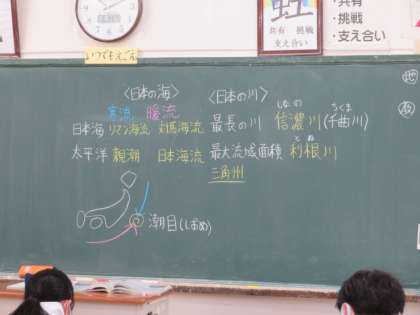 ・共有
・挑戦
・支え合い
共有 挑戦
支え合い
〈日本の海〉 〈日本の川〉
寒流 暖流
しなの ちくま
日本海 リマン海流 対馬海流 最長の川 信濃川(千曲川)
とね
太平洋 親潮 日本海流 最大流域面積 利根川
三角州
潮目(しおめ)
地